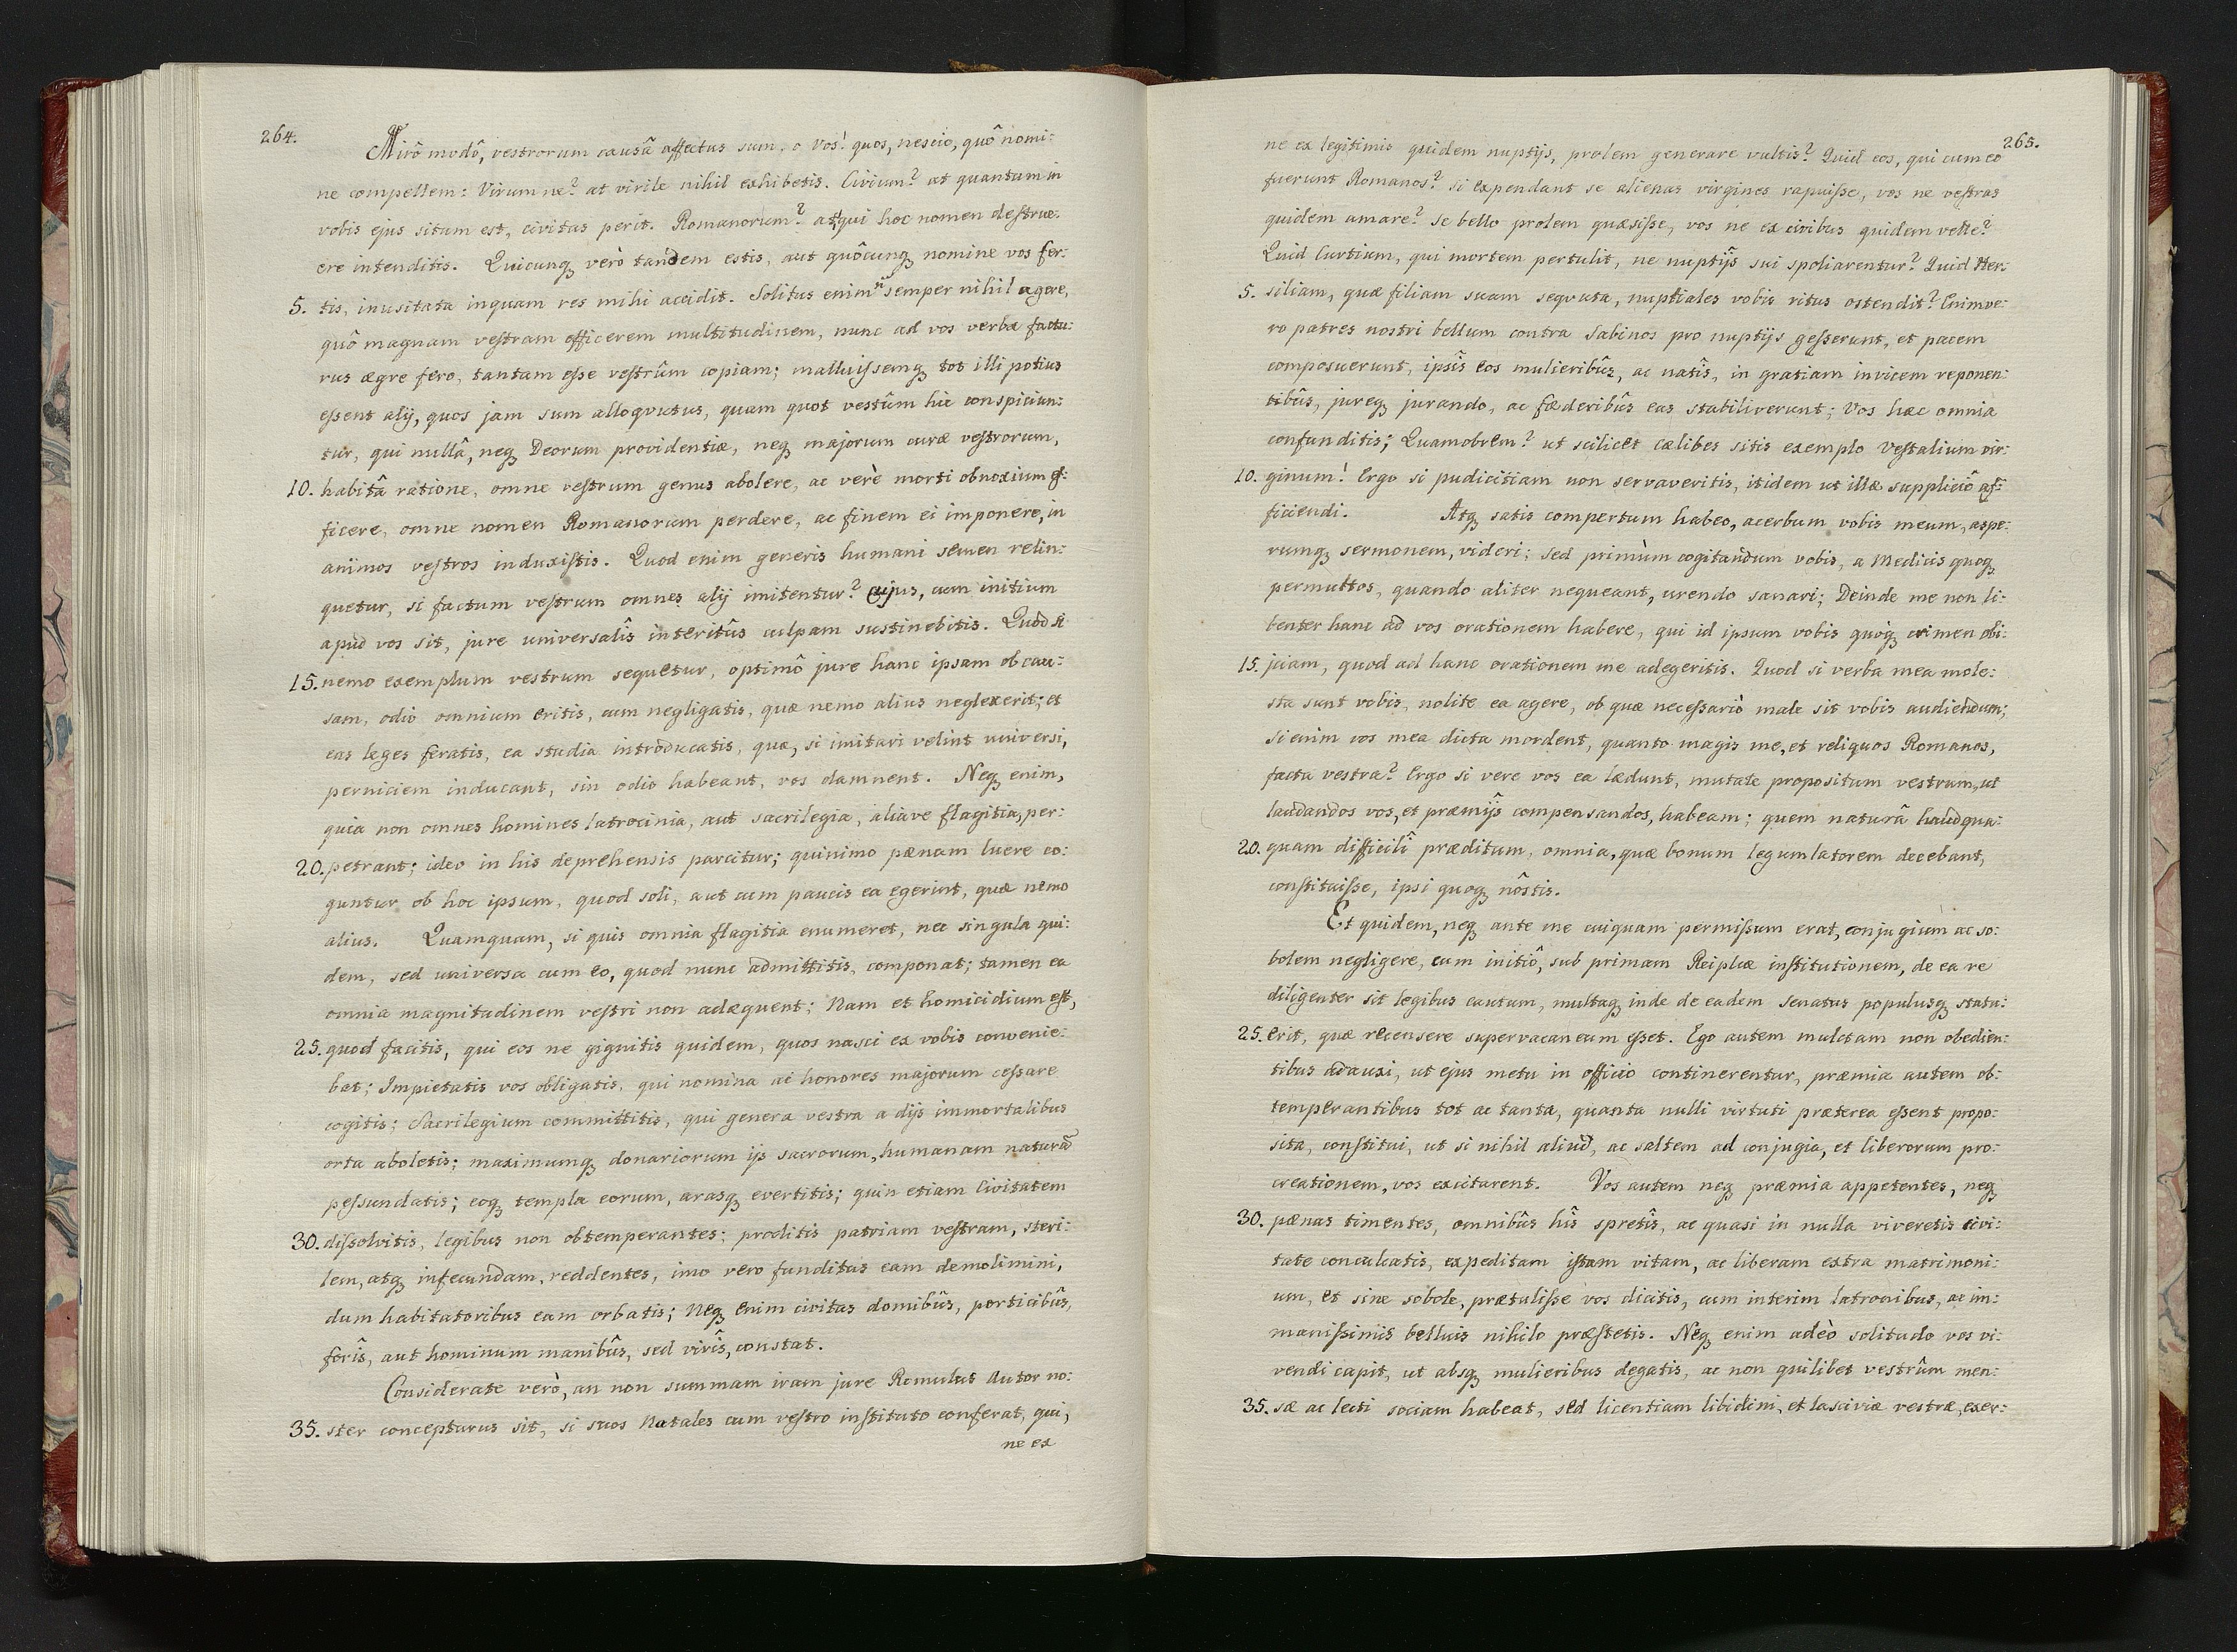 264.
Mirô modô, vestrorum causâ affectus sum, o Vos! quos, nescio, quô nomi:
ne compellem: Virum ne? at virile nihil exhibetis. Civium? at quantum in
vobis ejus situm est, civitas perit. Romanorum? atqui hoc nomen destrue:
ere intenditis. Quicunq, verò tandem estis, aut quôcunq, nomine vos fer:
5. tis, inusitata inquam res mihi accidit. Solitus enim semper nihil agere,
quô magnam vestram efficerem multitudinem, nunc ad vos verba factu:
rus ægre fero, tantam esse vestrûm copiam; malluissemq, tot illi potius
essent alij, quos jam sum alloquutus, quam quot vestûm hic conspiciun:
tur, qui nullâ, neq, Deorum providentiæ, neq, majorum curæ vestrorum,
10. habitâ ratione, omne vestrum genus abolere, ac verè morti obnoxium ef:
ficere, omne nomen Romanorum perdere, ac finem ei imponere, in
animos vestros induxistis. Quod enim generis humani semen relin:
quetur, si factum vestrum omnes alij imitentur? cujus, cum initium
apud vos sit, jure universalîs interitûs culpam sustinebitis. Quòd si
15. nemo exemplum vestrum sequetur, optimô jure hanc ipsam ob cau:
sam, odio omnium eritis, cum negligatis, quæ nemo alius neglexerit; et
eas leges feratis, ea studia introducatis, quæ, si imitari velint universi,
perniciem inducant, sin odio habeant, vos damnent. Neq, enim,
quia non omnes homines latrocinia, aut sacrilegia, aliave flagitia, per:
20. petrant; ideo in his deprehensis parcitur; quinimo pænam luere co:
guntur ob hoc ipsum, quod soli, aut cum paucis ea egerint, quæ nemo
alius. Quamquam, si quis omnia flagitia enumeret, nec singula qui:
dem, sed universa cum eo, quod nunc admittitis, componat; tamen ea
omnia magnitudinem vestri non adæquent; Nam et homicidium est,
25. quod facitis, qui eos ne gignitis quidem, quos nasci ex vobis convenie:
bat; Impietatis vos obligatis, qui nomina ac honores majorum cessare
cogitis; Sacrilegium committitis, qui genera vestra a dijs immortalibus
orta aboletis; maximumq, donariorum ijs sacrorum, humanam naturã
pessundatis; eoq, templa eorum, arasq, evertitis; quin etiam Civitatem
30. dissolvitis, legibus non obtemperantes; proditis patriam vestram, steri:
lem, atq, infecundam, reddentes, imo vero funditus eam demolimini,
dum habitatoribus eam orbatis; Neq, enim civitas domibûs, porticibûs,
forîs, aut hominum manibûs, sed virîs, constat.
Considerate verò, an non summam iram jure Romulus Autor no:
35. ster concepturus sit, si suos Natales cum vestro instituto conferat, qui,
ne ex
265.
ne ex legitimis quidem nuptijs, prolem generare vultis? Quid eos, qui cum eo
fuerunt Romanos? si expendant se alienas virgines rapuisse, vos ne vestras
quidem amare? se bello prolem quæsisse, vos ne ex civibus quidem velle?
Quid Curtium, qui mortem pertulit, ne nuptijs sui spoliarentur? Quid Her:
5. siliam, quæ filiam suam sequuta, nuptiales vobis ritus ostendit? Enimve:
ro patres nostri bellum contra Sabinos pro nuptijs gesserunt, et pacem
composuerunt, ipsîs eos mulieribûs, ac natîs, in gratiam invicem reponen:
tibûs, jureq, jurando, ac fæderibûs eas stabiliverunt; Vos hæc omnia
confunditis; Quamobrem? ut scilicet cælibes sitis exemplo Vestalium vir:
10. ginum! Ergo si pudicitiam non servaveritis, itidem ut illæ suppliciô af:
ficiendi. Atq, satis compertum habeo, acerbum vobis meum, aspe:
rumq, sermonem, videri; sed primùm cogitandum vobis, a Medicis quoq,
permultos, quando aliter nequeant, urendo sanari; Deinde me non li:
benter hanc ad vos orationem habere, qui id ipsum vobis quoq, crimen obi:
15. jciam, quod ad hanc orationem me adegeritis. Quod si verba mea mole:
sta sunt vobis, nolite ea agere, ob quæ necessariò male sit vobis audiendum;
si enim vos mea dicta mordent, quanto magis me, et reliquos Romanos,
facta vestra? Ergo si vere vos ea lædunt, mutate propositum vestrum, ut
laudandos vos, et præmijs compensandos, habeam; quem naturâ haudqua:
20. quam difficilî præditum, omnia, quæ bonum legumlatorem decebant,
constituisse, ipsi quoq, nôstis.
Et quidem, neq, ante me cuiquam permissum erat, conjugium ac so:
bolem negligere, cum initiô, sub primam Reiplicæ institutionem, de ea re
diligenter sit legibus cautum, multaq, inde de eadem senatus populusq, statu:
25. erit, quæ recensere supervacaneum esset. Ego autem mulctam non obedien:
tibus adauxi, ut ejus metu in officio continerentur, præmia autem ob:
temperantibus tot ac tanta, quanta nulli virtuti præterea essent propo:
sita, constitui, ut si nihil aliud, ac saltem ad conjugia, et liberorum pro:
creationem, vos excitarent. Vos autem neq, præmia appetentes, neq,
30. pænas timentes, omnibûs hîs spretîs, ac quasi in nulla viveretis civi:
tate conculcatis, expeditam istam vitam, ac liberam extra matrimoni:
um, et sine sobole, prætulisse vos dicitis, cum interim latronibus, ac im:
manissimis belluis nihilo præstetis. Neq, enim adeò solitudo vos vi:
vendi capit, ut absq, mulieribus degatis, ac non quilibet vestrûm men:
35. sæ ac lecti sociam habeat, sed licentiam libidini, et lasciviæ vestræ, exer: